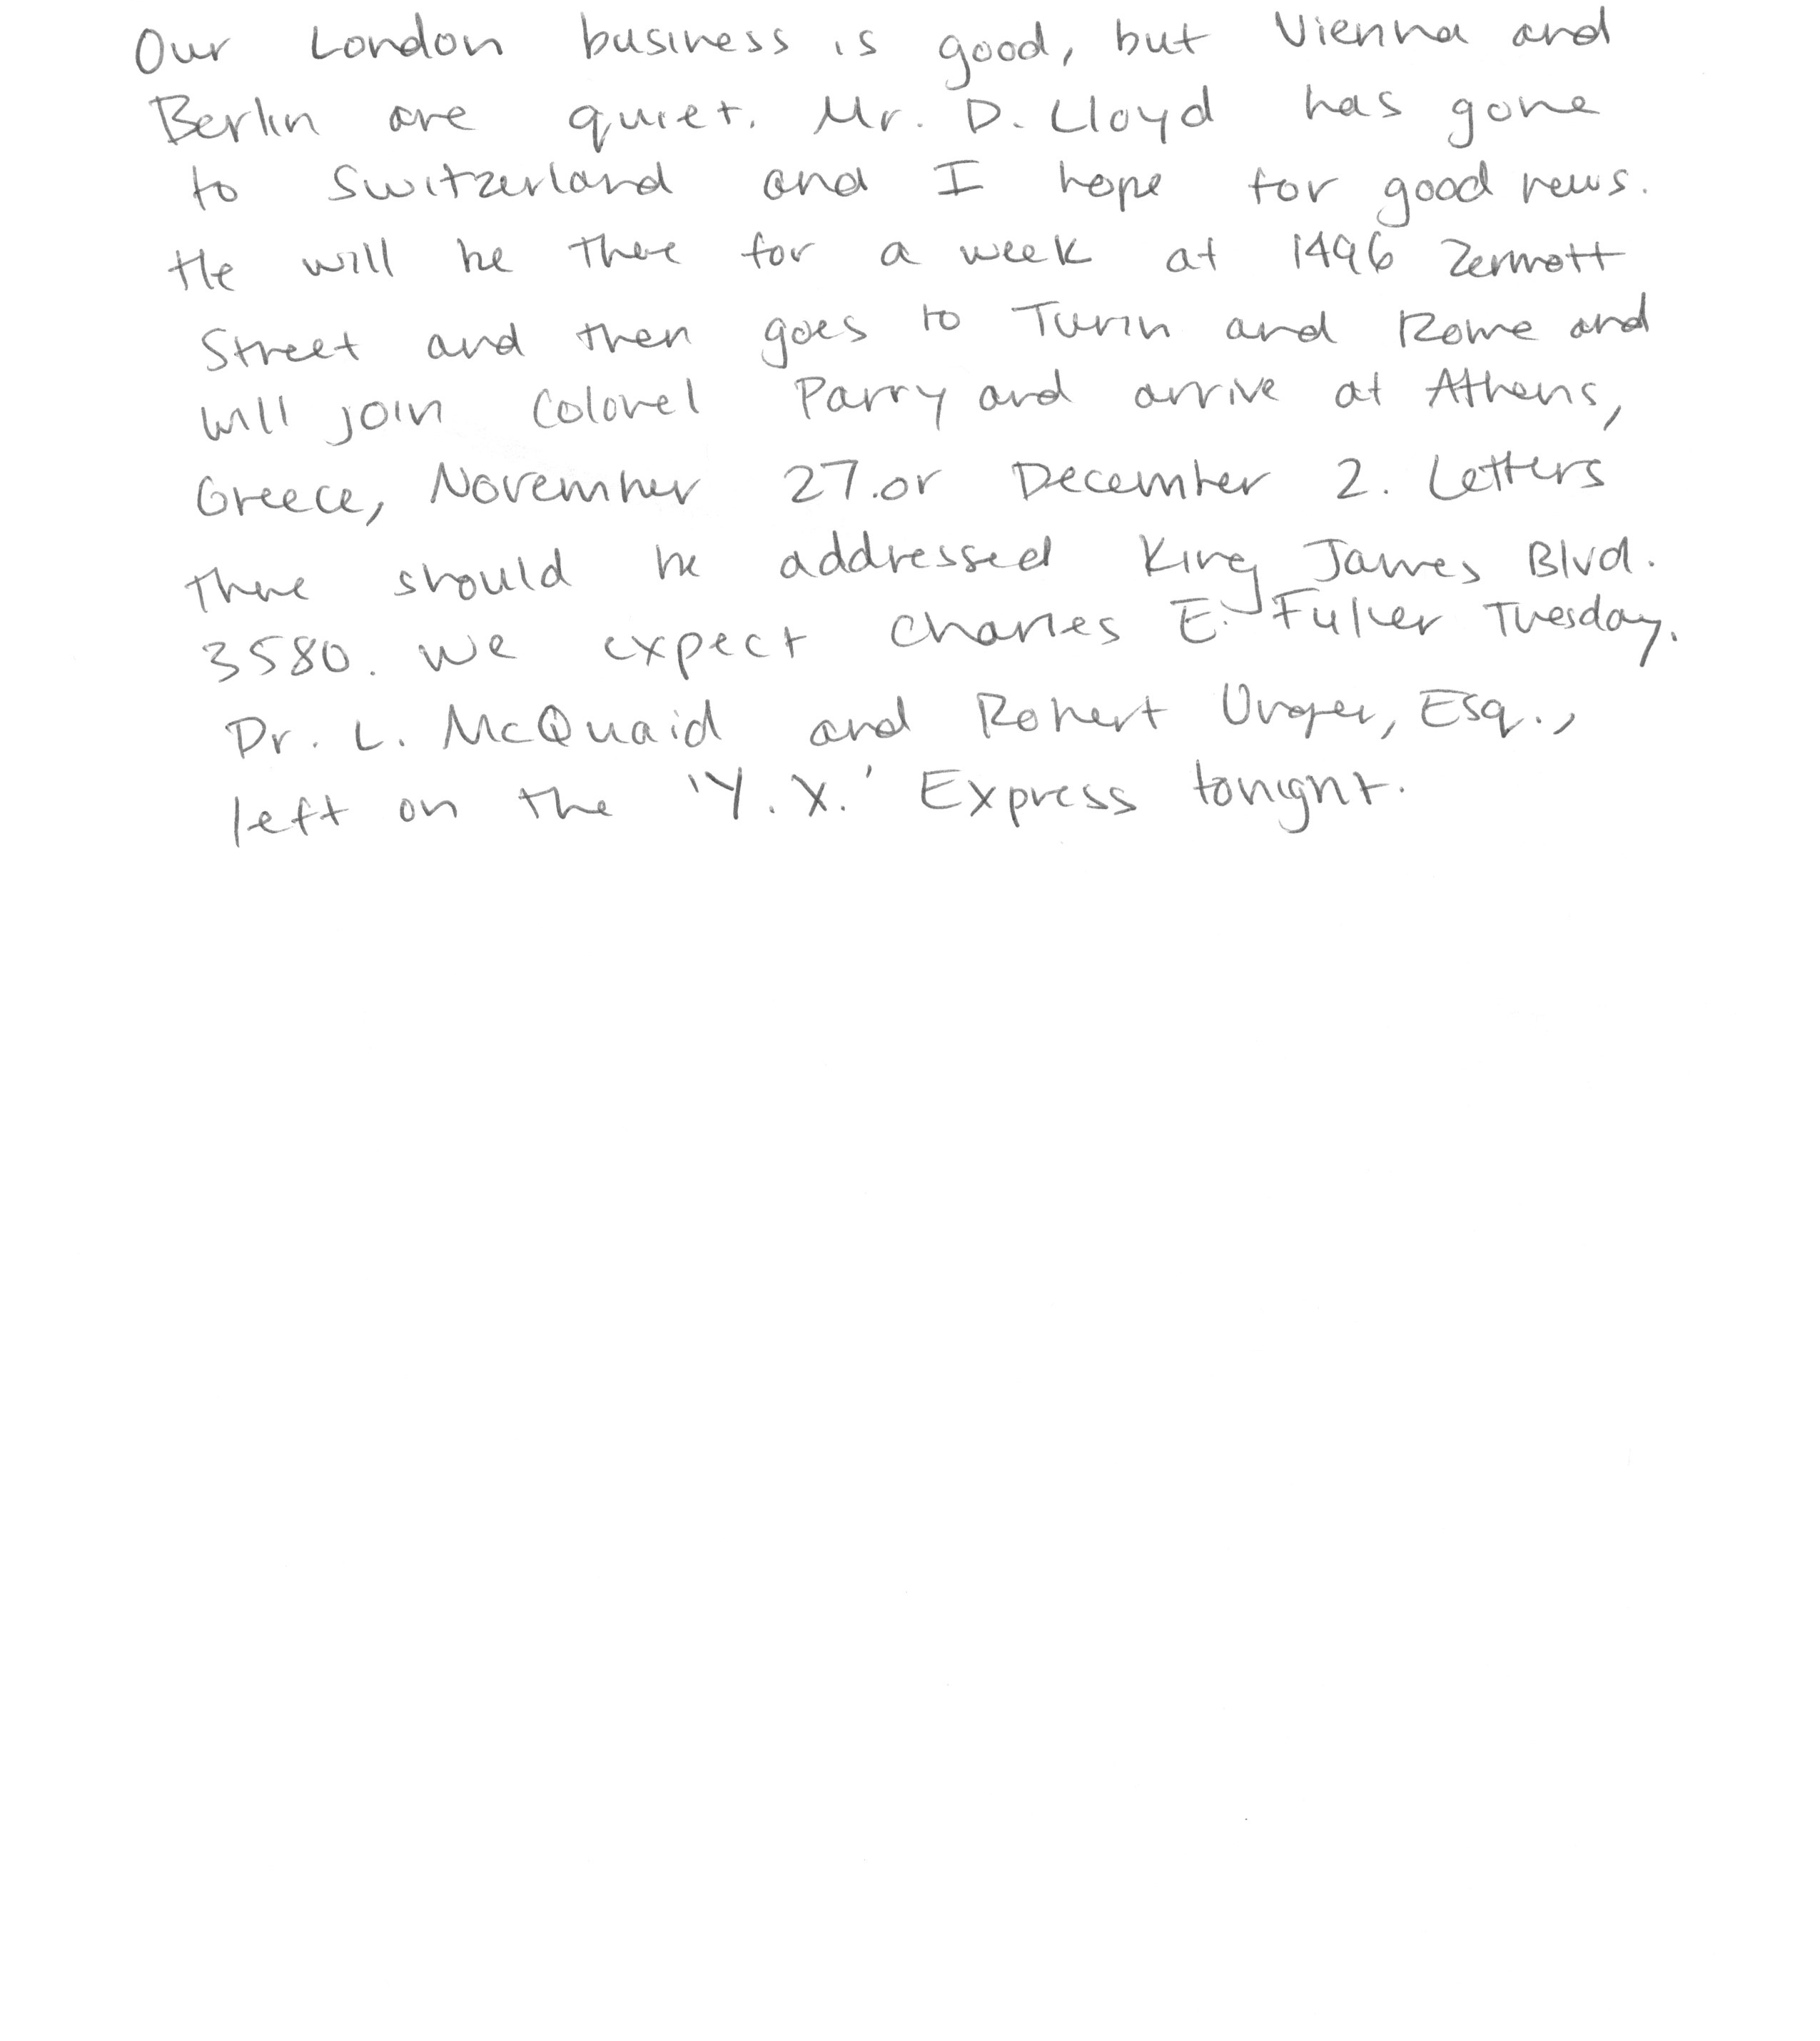 Our London business is good, but Vienna and
Berlin are quiet. Mr. D. Lloyd has gone
to Switzerland and I hope for good news.
He will be there for a week at 1496 Zermott
Street and then goes to Turin and Rome and
will join Colonel Parry and arrive at Athens,
Greece, November 27.or December 2. Letters
there should be addressed King James Blvd.
3580. We expect Charles E. Fuller Tuesday.
Dr. L. McQuaid and Robert Unger, Esq.,
left on the 'Y.X.' Express tonight.